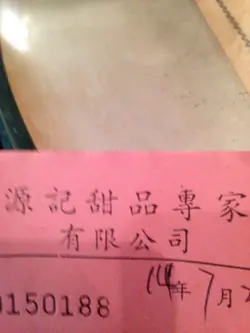 源記甜品專家
有限公司
0150188 14年7月